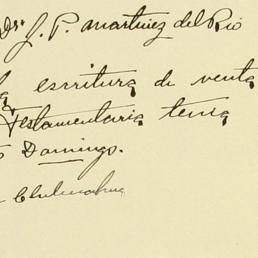 Dr. J. P. Martinez del Rio
escritura de venta
Testamentaria tenia
Domingo.
Chihuahua